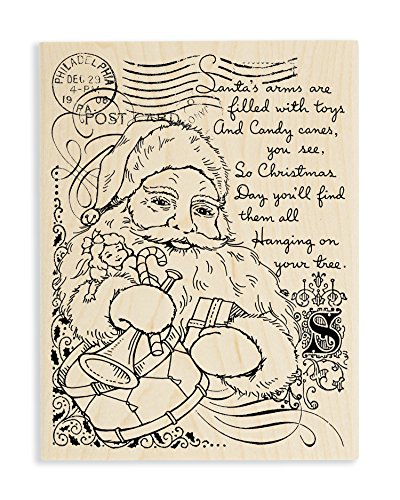 PHILADELPHIA
DEC 29
4-PM
19 06
PA.
POST CARD
Santa's arms are
filled with toys
And Candy canes,
you see,
So Christmas
Day you'll find
them all
Hanging on
your tree.
S